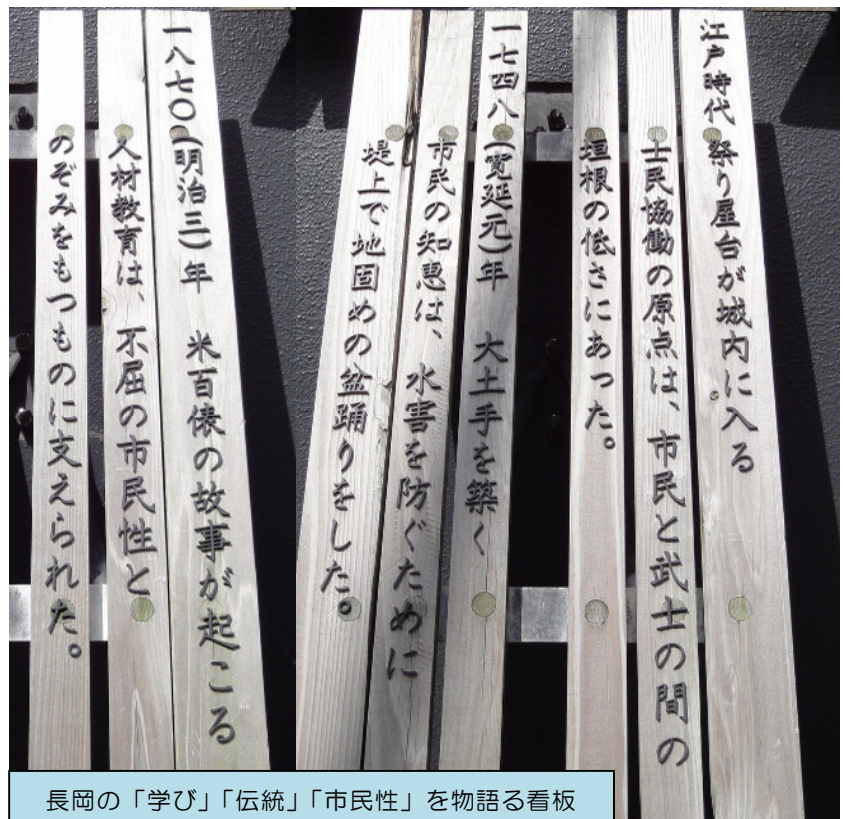 江戸時代 祭り屋台が城内に入る
士民協働の原点は、市民と武士の間の
垣根の低さにあった。
一七四八(寛延元)年 大土手を築く
市民の知恵は、水害を防ぐために
堤上で地固めの盆踊りをした。
一八七〇(明治三)年 米百俵の故事が起こる
人材教育は、不屈の市民性と
のぞみをもつものに支えられた。
長岡の「学び」「伝統」「市民性」を物語る看板